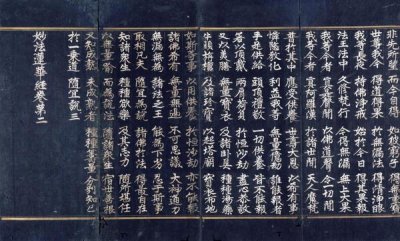 非先所望　而今自得　如彼窮子　得無量寶
世尊我今　得道得果　於無漏法　得清淨眼
我等長夜　持佛淨戒　始於今日　得其果報
法王法中　久修梵行　今得無漏　無上大果
我等今者　真是聲聞　以佛道聲　令一切聞
我等今者　真阿羅漢　於諸世間　天人魔梵
普於其中　應受供養　世尊大恩　以希有事
憐愍教化　利益我等　無量億劫　誰能報者
手足供給　頭頂禮敬　一切供養　皆不能報
若以頂戴　兩肩荷負　於恒沙劫　盡心恭敬
又以美饍　無量寶衣　及諸臥具　種種湯藥
牛頭栴檀　及諸珍寶　以起塔廟　寶衣布地
如斯等事　以用供養　於恒沙劫　亦不能報
諸佛希有　無量無邊　不可思議　大神通力
無漏無為　諸法之王　能為下劣　忍于斯事
取相凡夫　隨宜為說　諸佛於法　得最自在
知諸眾生　種種欲樂　及其志力　隨所堪任
以無量喻　而為說法　隨諸眾生　宿世善根
又知成熟　未成熟者　種種籌量　分別知已
於一乘道　隨宜說三
妙法蓮華經卷第二